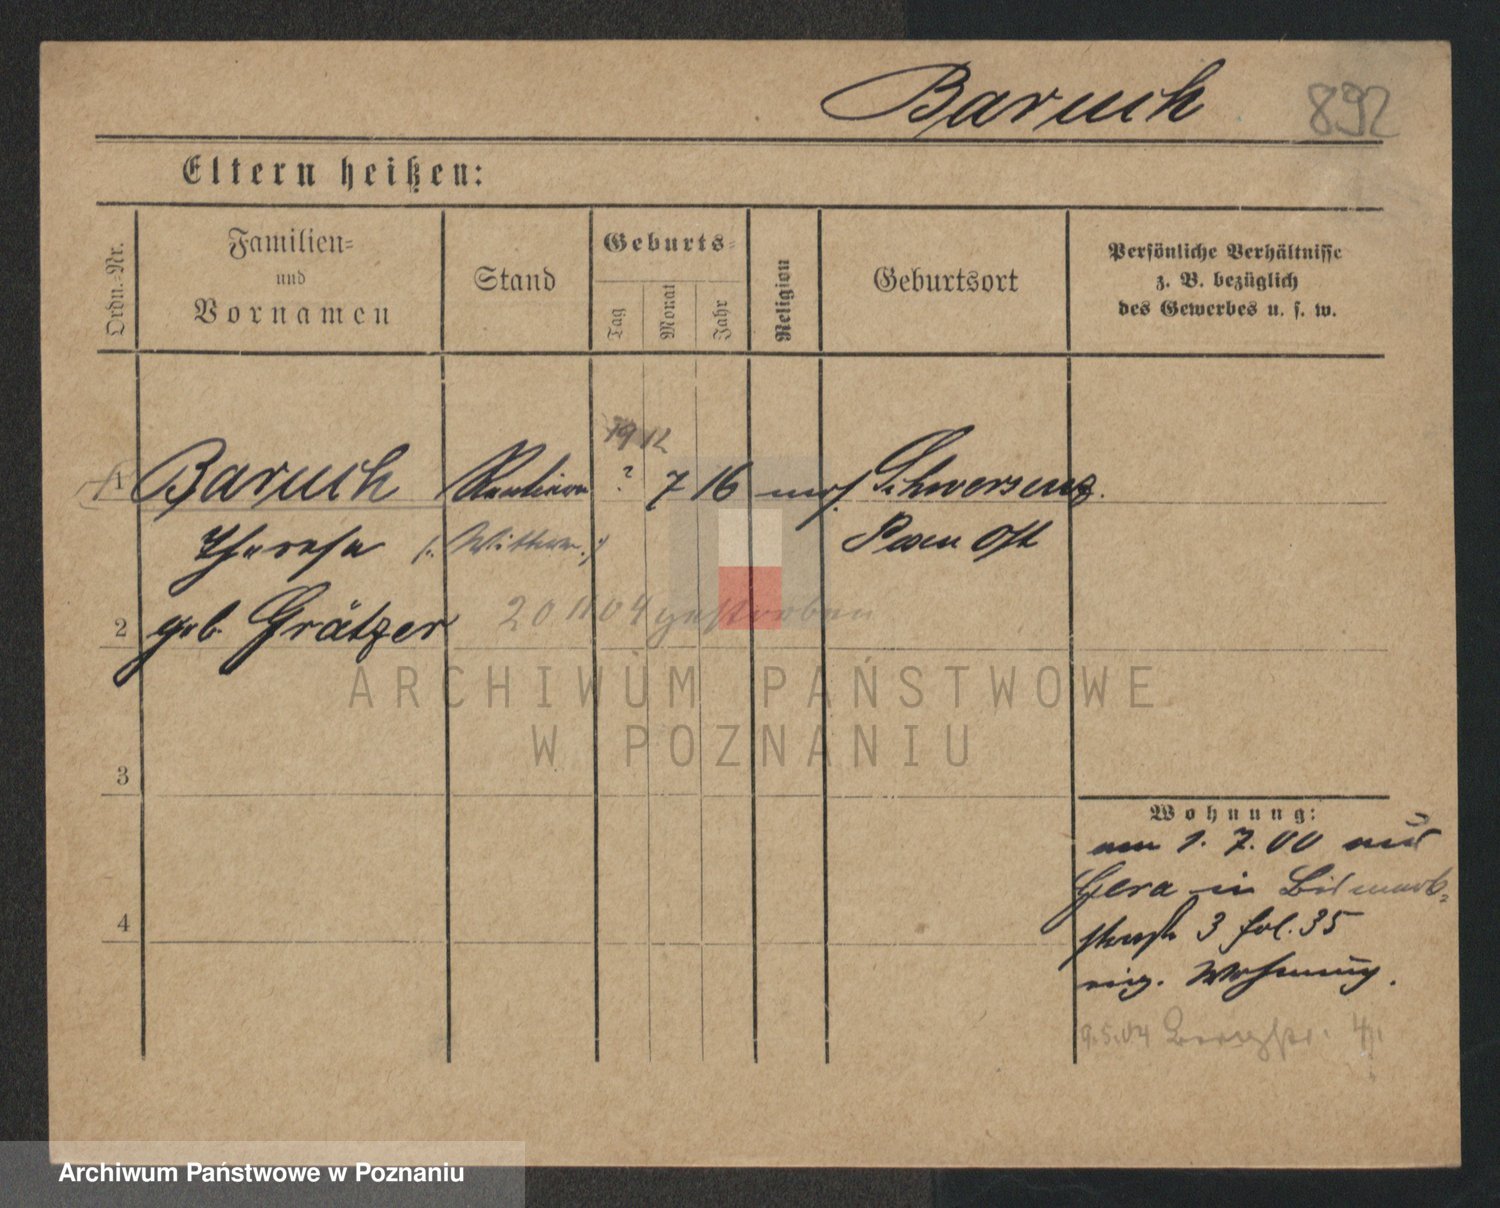 Baruch 892
Eltern heißen:
Ordn.-Nr.
Familien-
und
Vornamen
Stand
Geburts-
Tag
Monat
Jahr
Religion
Geburtsort
Persönliche Verhältnisse
z. B. bezüglich
des Gewerbes u. s. w.
19 12
1 Baruch ? 7 16 mos. Schwersenz.
Therese (: Wittwe :) Posen Ost
2 geb. Grätzer 20 11 04 gestorben
ARCHIWUM PAŃSTWOWE
W POZNANIU
3
Wohnung:
am 1. 7. 00 aus
Gera in Bismark-
4 straße 3 fol. 35
eig. Wohnung.
9.5.04
Archiwum Państwowe w Poznaniu